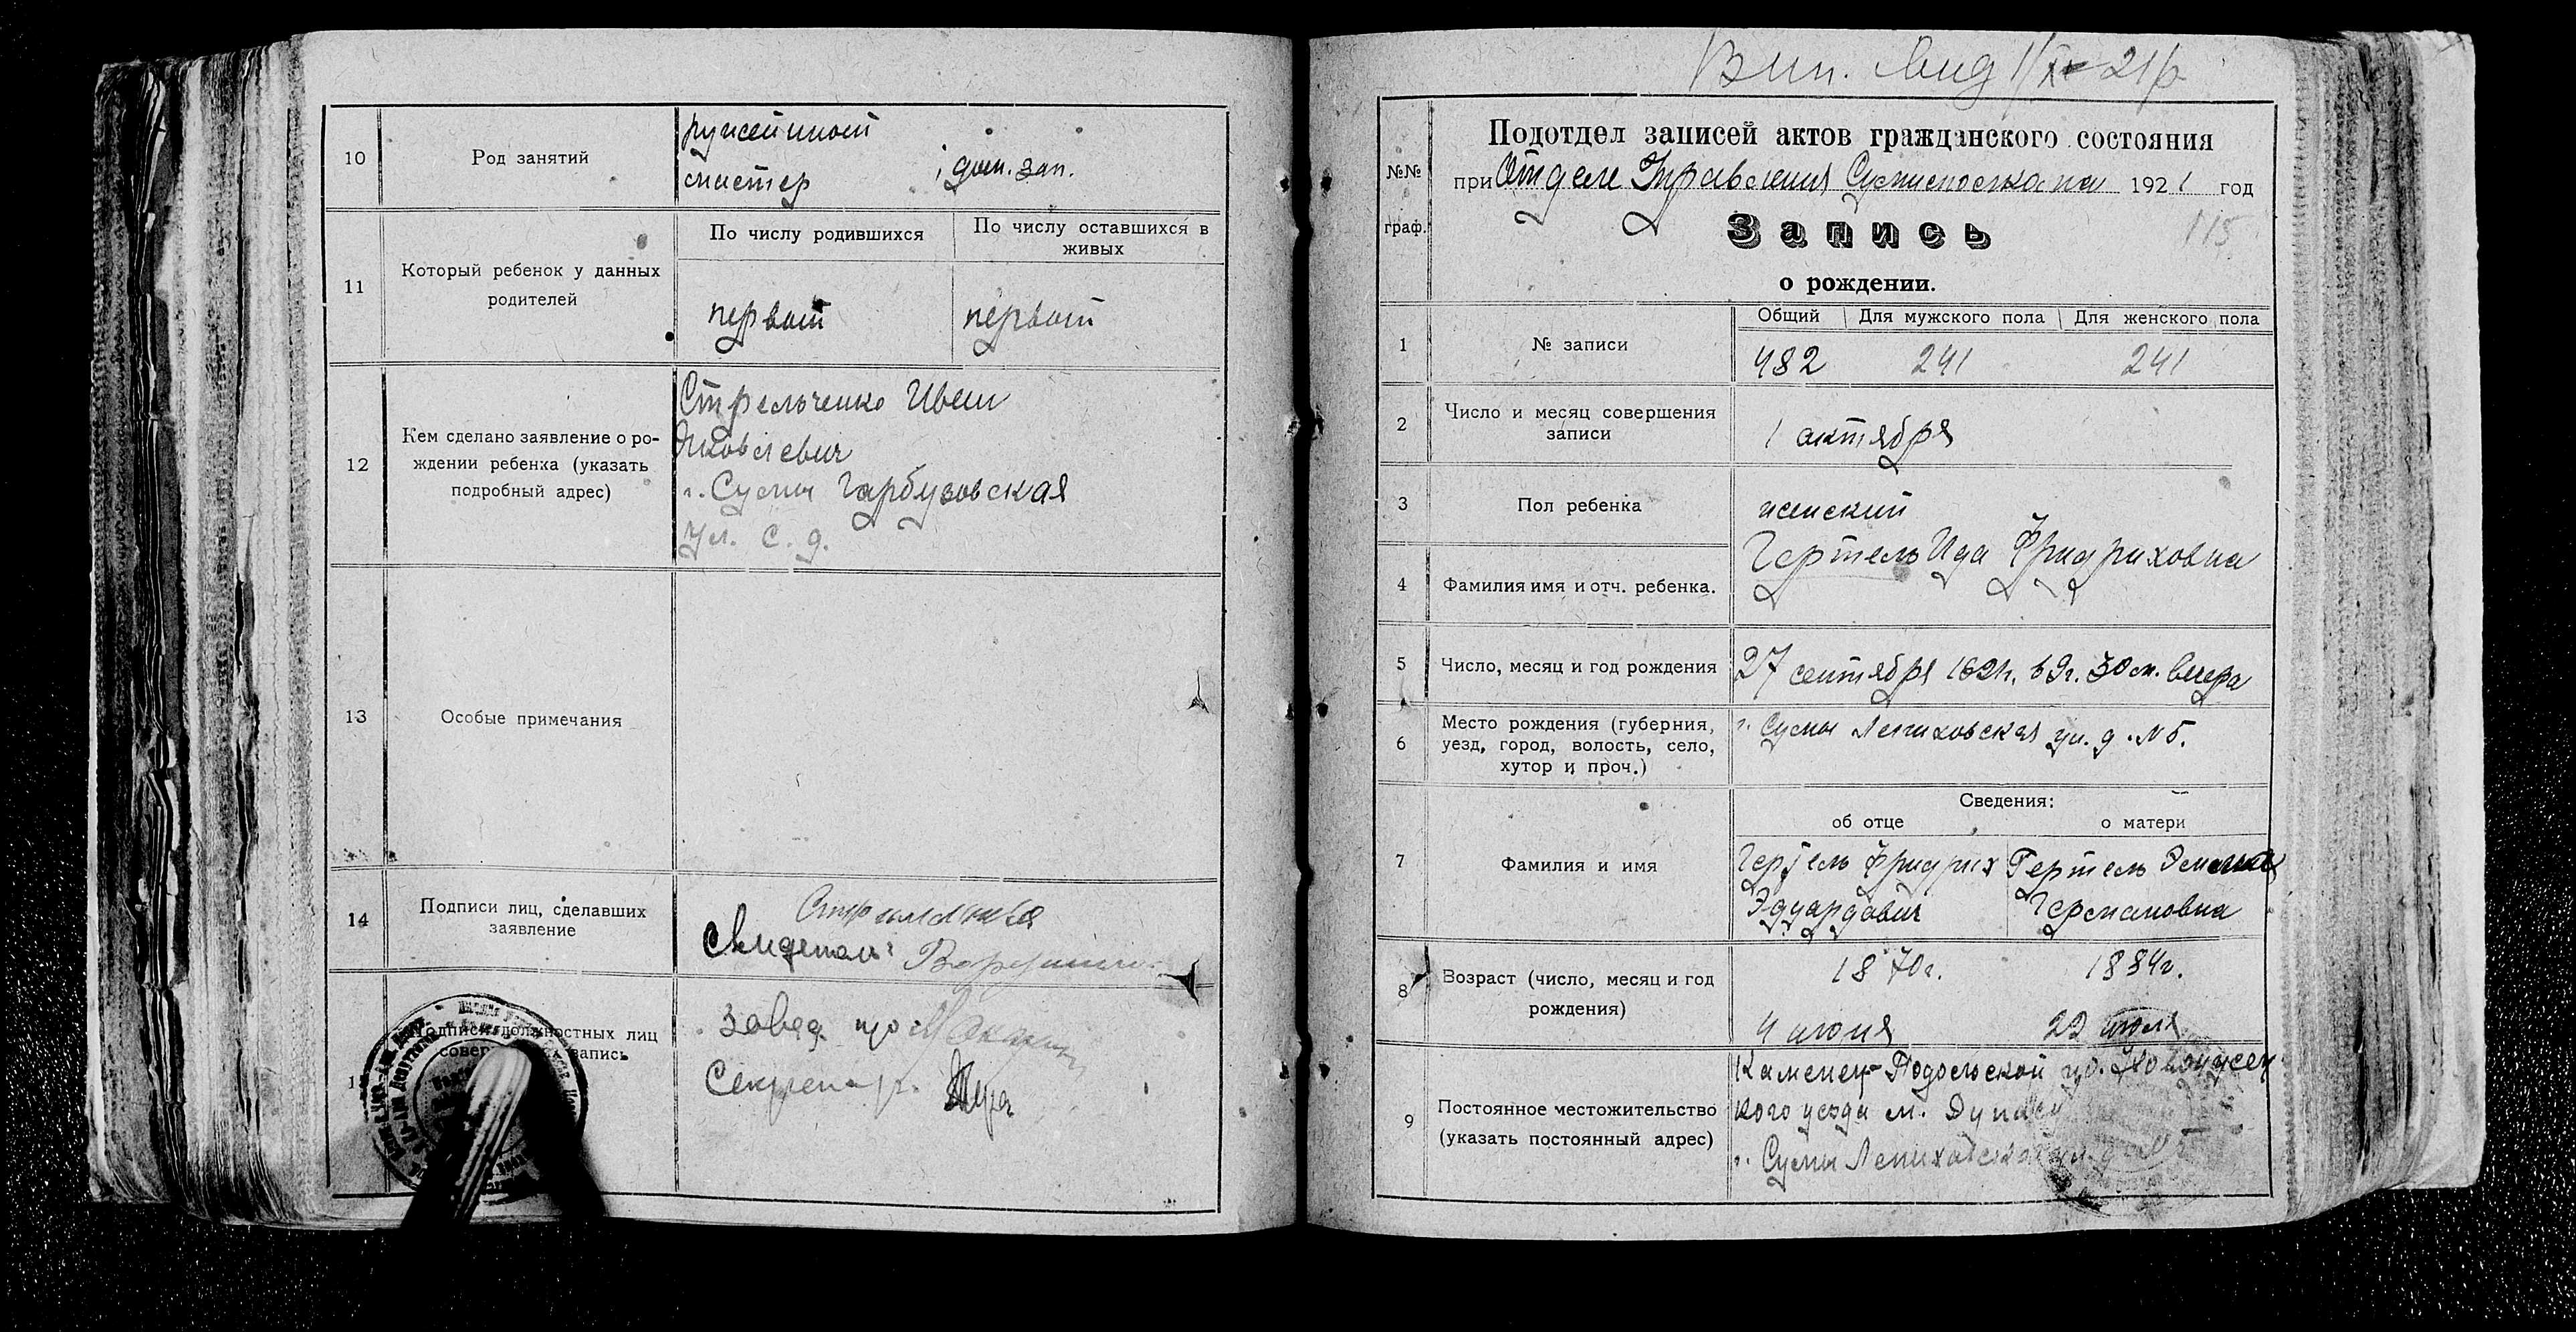 10
Род занятий
ружейный
мастер
дом. зан.
11
Который ребенок у данных
родителей
По числу родившихся
По числу оставшихся в
живых
первый
первый
12
Кем сделано заявление о ро-
ждении ребенка (указать
подробный адрес)
Стрельченко Иван
Яковлевич
г. Сумы Гарбузовская
ул. с. д.
13
Особые примечания
14
Подписи лиц, сделавших
заявление
Свидетель:
Подписи должностных лиц
запись
Завед.
Секретарь
Вип. 1/XI 21р
№№
граф.
Подотдел записей актов гражданского состояния
при Отделе Управления 1921 год
115
Запись
о рождении.
1
№ записи
Общий
Для мужского пола
Для женского пола
482
241
241
2
Число и месяц совершения
записи
1 октября
3
Пол ребенка
женский
4
Фамилия имя и отч. ребенка.
Гертель Ида Фридриховна
5
Число, месяц и год рождения
27 сентября 1921г. в 9ч. 30м. вечера
6
Место рождения (губерния,
уезд, город, волость, село,
хутор и проч.)
г. Сумы Лепиховская ул. д. №5.
7
Фамилия и имя
Сведения:
об отце
о матери
Гертель Фридрих
Эдуардович
Гертель
Германовна
8
Возраст (число, месяц и год
рождения)
1870г.
4 июня
1884г.
22 июля
9
Постоянное местожительство
(указать постоянный адрес)
Каменец-Подольской губ.
кого уезда м.
г. Сумы Лепиховская ул. д. №5